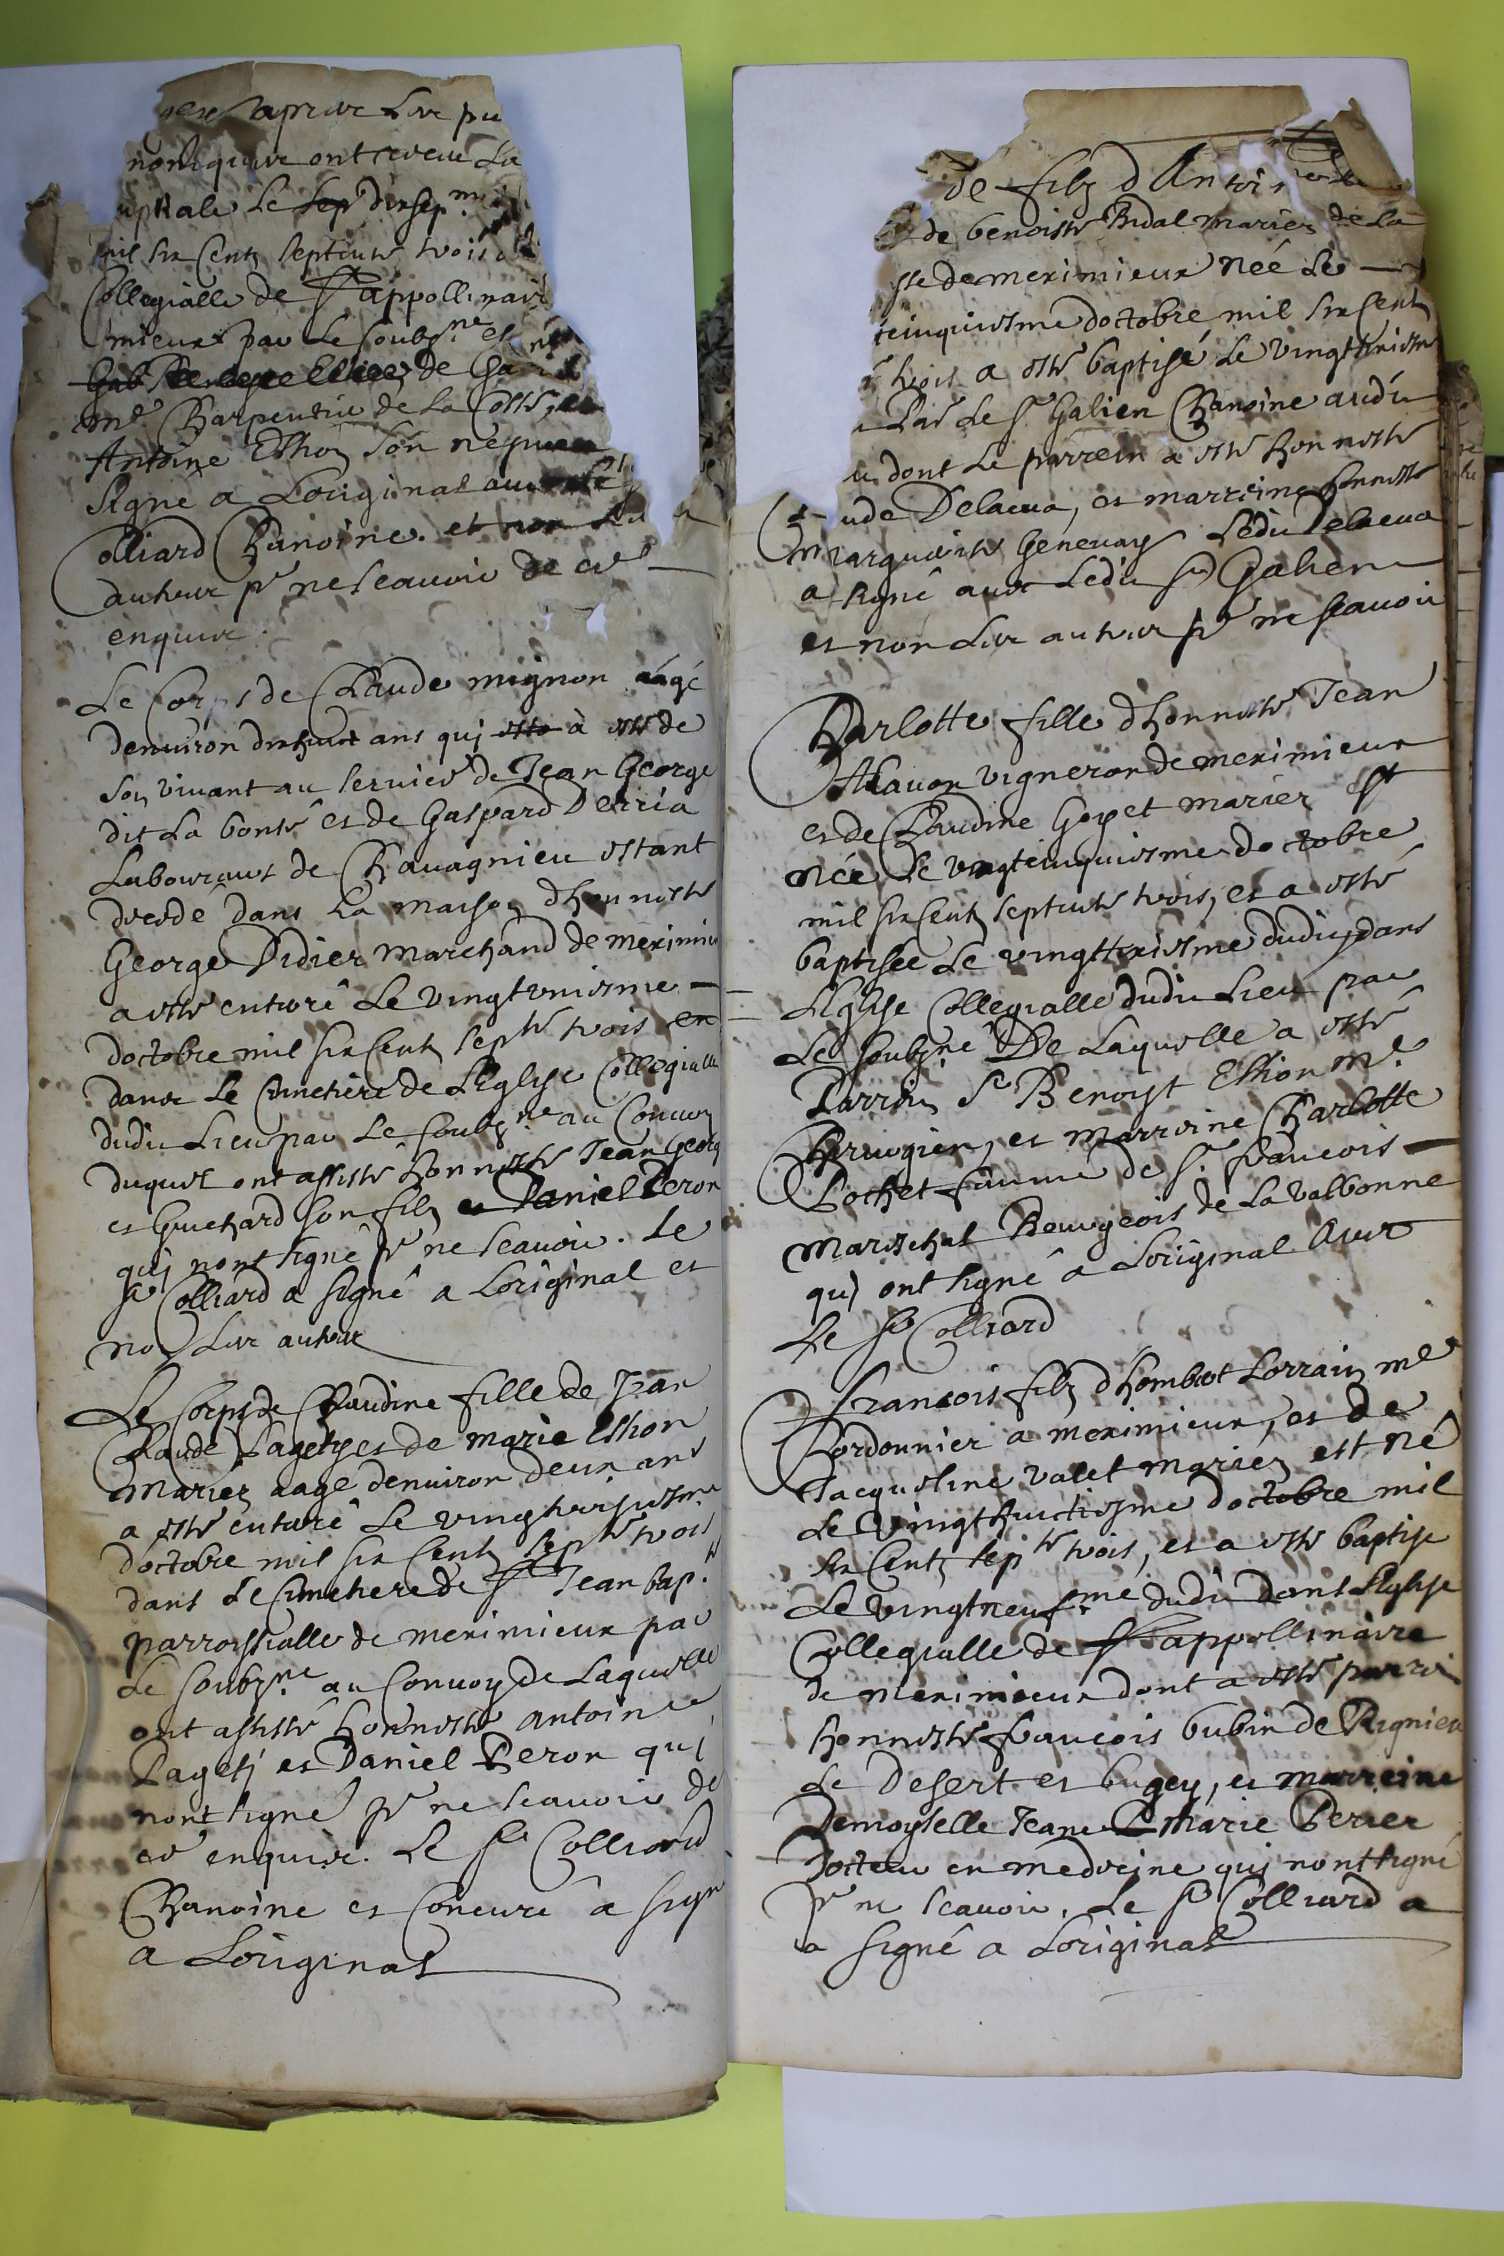 apres Leur pu
nonique ont receu La
uptiale Le sep dixsep.me
mil six Cents septante trois
Collegialle de St appollinair
mieux par Le soubz.ne et
de
me Charpentier de La Coste, et
Antoine Ethon son nepueu
signé a Loriginal avec Le Sr
Colliard Chanoine. et non Les
autres pr ne scauoir de ce
enquis.
Le Corps de Claude mignon áagé
denuiron dixhuit ans qui esté à esté de
son viuant au seruice de Jean George
dit La bonté et de Gaspard Derria
Laboureurs de Chauagnieu estant
decedé dans La maison dhonneste
George Didier Marchand de meximieu
a esté enterré Le vingtuniesme
doctobre mil six Cents septte trois en
dans Le Cimetiere de Leglise Collegialle
dudit Lieu par Le soubz.ne au Conuoy
duquel ont assisté honneste Jean George
et Guichard son filz et Daniel Peron
qui nont signé pr ne scauoir. Le
Sr Colliard a signé a Loriginal et
non Les autres
Le Corps de Claudine fille de Jean
Claude Pagety et de marie Ethon
mariez aagé denuiron deux ans
a esté enterré Le vingthuitiesme
doctobre mil six Cents septte trois
dans Le Cimetiere de St Jean bap.te
parroissialle de meximieux par
Le soubz.ne au Conuoy de Laquelle
ont assisté honneste antoine
Pagety et Daniel Peron qui
nont signé pr ne scauoir de
ce enquis. Le Sr Colliard
Chanoine et Concuré a signé
a Loriginal
de filz d Antoine
de benoiste Bidal mariez de La
sse de meximieux Née Le
cinquiesme doctobre mil six Cents
trois a esté baptisé Le vingttroisme
Par Le Sr Galien Chanoine audit
dont Le parrein a esté honneste
ude Delacua, et marreine honneste
marguerite Geneuay Ledit Delacua
a signé auec Ledit Sr Galien
et non Les autres pr ne scauoir
Charlotte fille dhonneste Jean
Vigneron de meximieux
et de Claudine Goyet mariez est
née Le vingtcinquiesme doctobre
mil six Cents septante trois, et a esté
baptisée Le vingtsixiesme dudit dans
Leglise Collegialle dudit Lieu par
Le soubzne De Laquelle a esté
Parrein Sr Benoist Ethon Me
Chirurgien, et marreine Charlotte
Pochet famme de Sr francois
Mareschal Bourgeois de La valbonne
qui ont signé a Loriginal Auec
Le Sr Colliard
francois filz dhombert Lorrain me
Cordonnier a meximieux, et de
Jacqueline valet mariez est Né
Le Vingthuictiesme doctobre mil
six Cents septte trois, et a esté baptise
Le vingtneuf.me dudit dans Leglise
Collegialle de St appollinaire
de meximieux dont a esté parrein
honneste francois bubin de Rignieu
Le Desert et bugey, et marreine
Demoyselle Jeane Marie Perier
Docteur en medecine qui nont signé
pr ne scauoir. Le Sr Colliard a
a signé a Loriginal